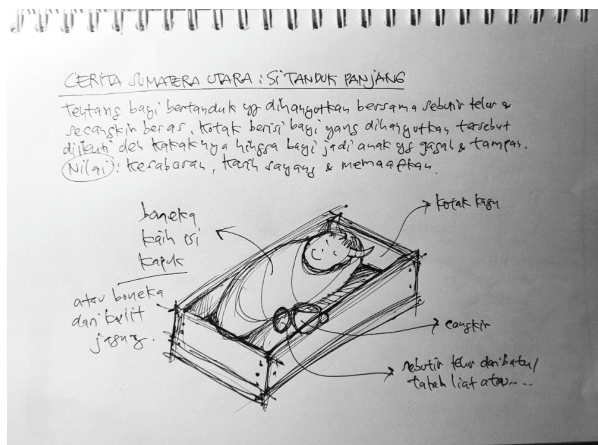 CERITA SUMATERA UTARA : SI TANDUK PANJANG
Tentang bayi bertanduk yg dihanyutkan bersama sebutir telur &
secangkir beras. Kotak berisi bayi yang dihanyutkan tersebut
diikuti oleh kakaknya hingga bayi jadi anak yg gagah & tampan.
Nilai : Kesabaran, kasih sayang & memaafkan.
boneka
kain isi
kapuk
atau boneka
dari kulit
jagung.
kotak kayu
cangkir
sebutir telur dari batu/
tanah liat atau.....